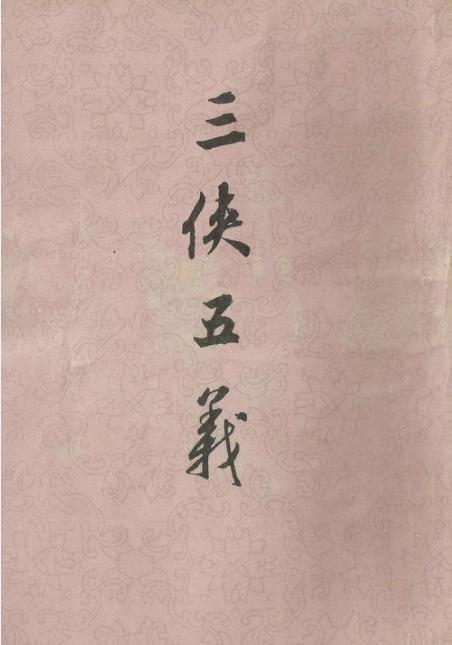 三俠五義